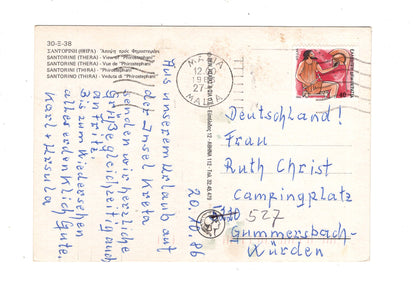 30-Ξ-38
ΣΑΝΤΟΡΙΝΗ (ΘΗΡΑ) "Άποψη πρός Φηροστεφάνι"
SANTORINE (THERA) - View of "Phirostephani"
SANTORINE (THERA) - Vue de "Phirostephani"
SANTORINO (THERA) - "Phirostephani"
SANTORINO (THERA) - Veduta di "Phirostephani"
20.10.86
Aus unserem Urlaub auf
der Insel Kreta
senden wir herzliche
Grüße gleichzeitig auch
an Fritz.
Bis zum Wiedersehen
alles erdenklich Gute.
Karl + Ursula
ΜΑΛΙΑ
12.
19
27
MALIA
Deutschland!
Frau
Ruth Christ
Campingplatz
527
Gummersbach-
Würden